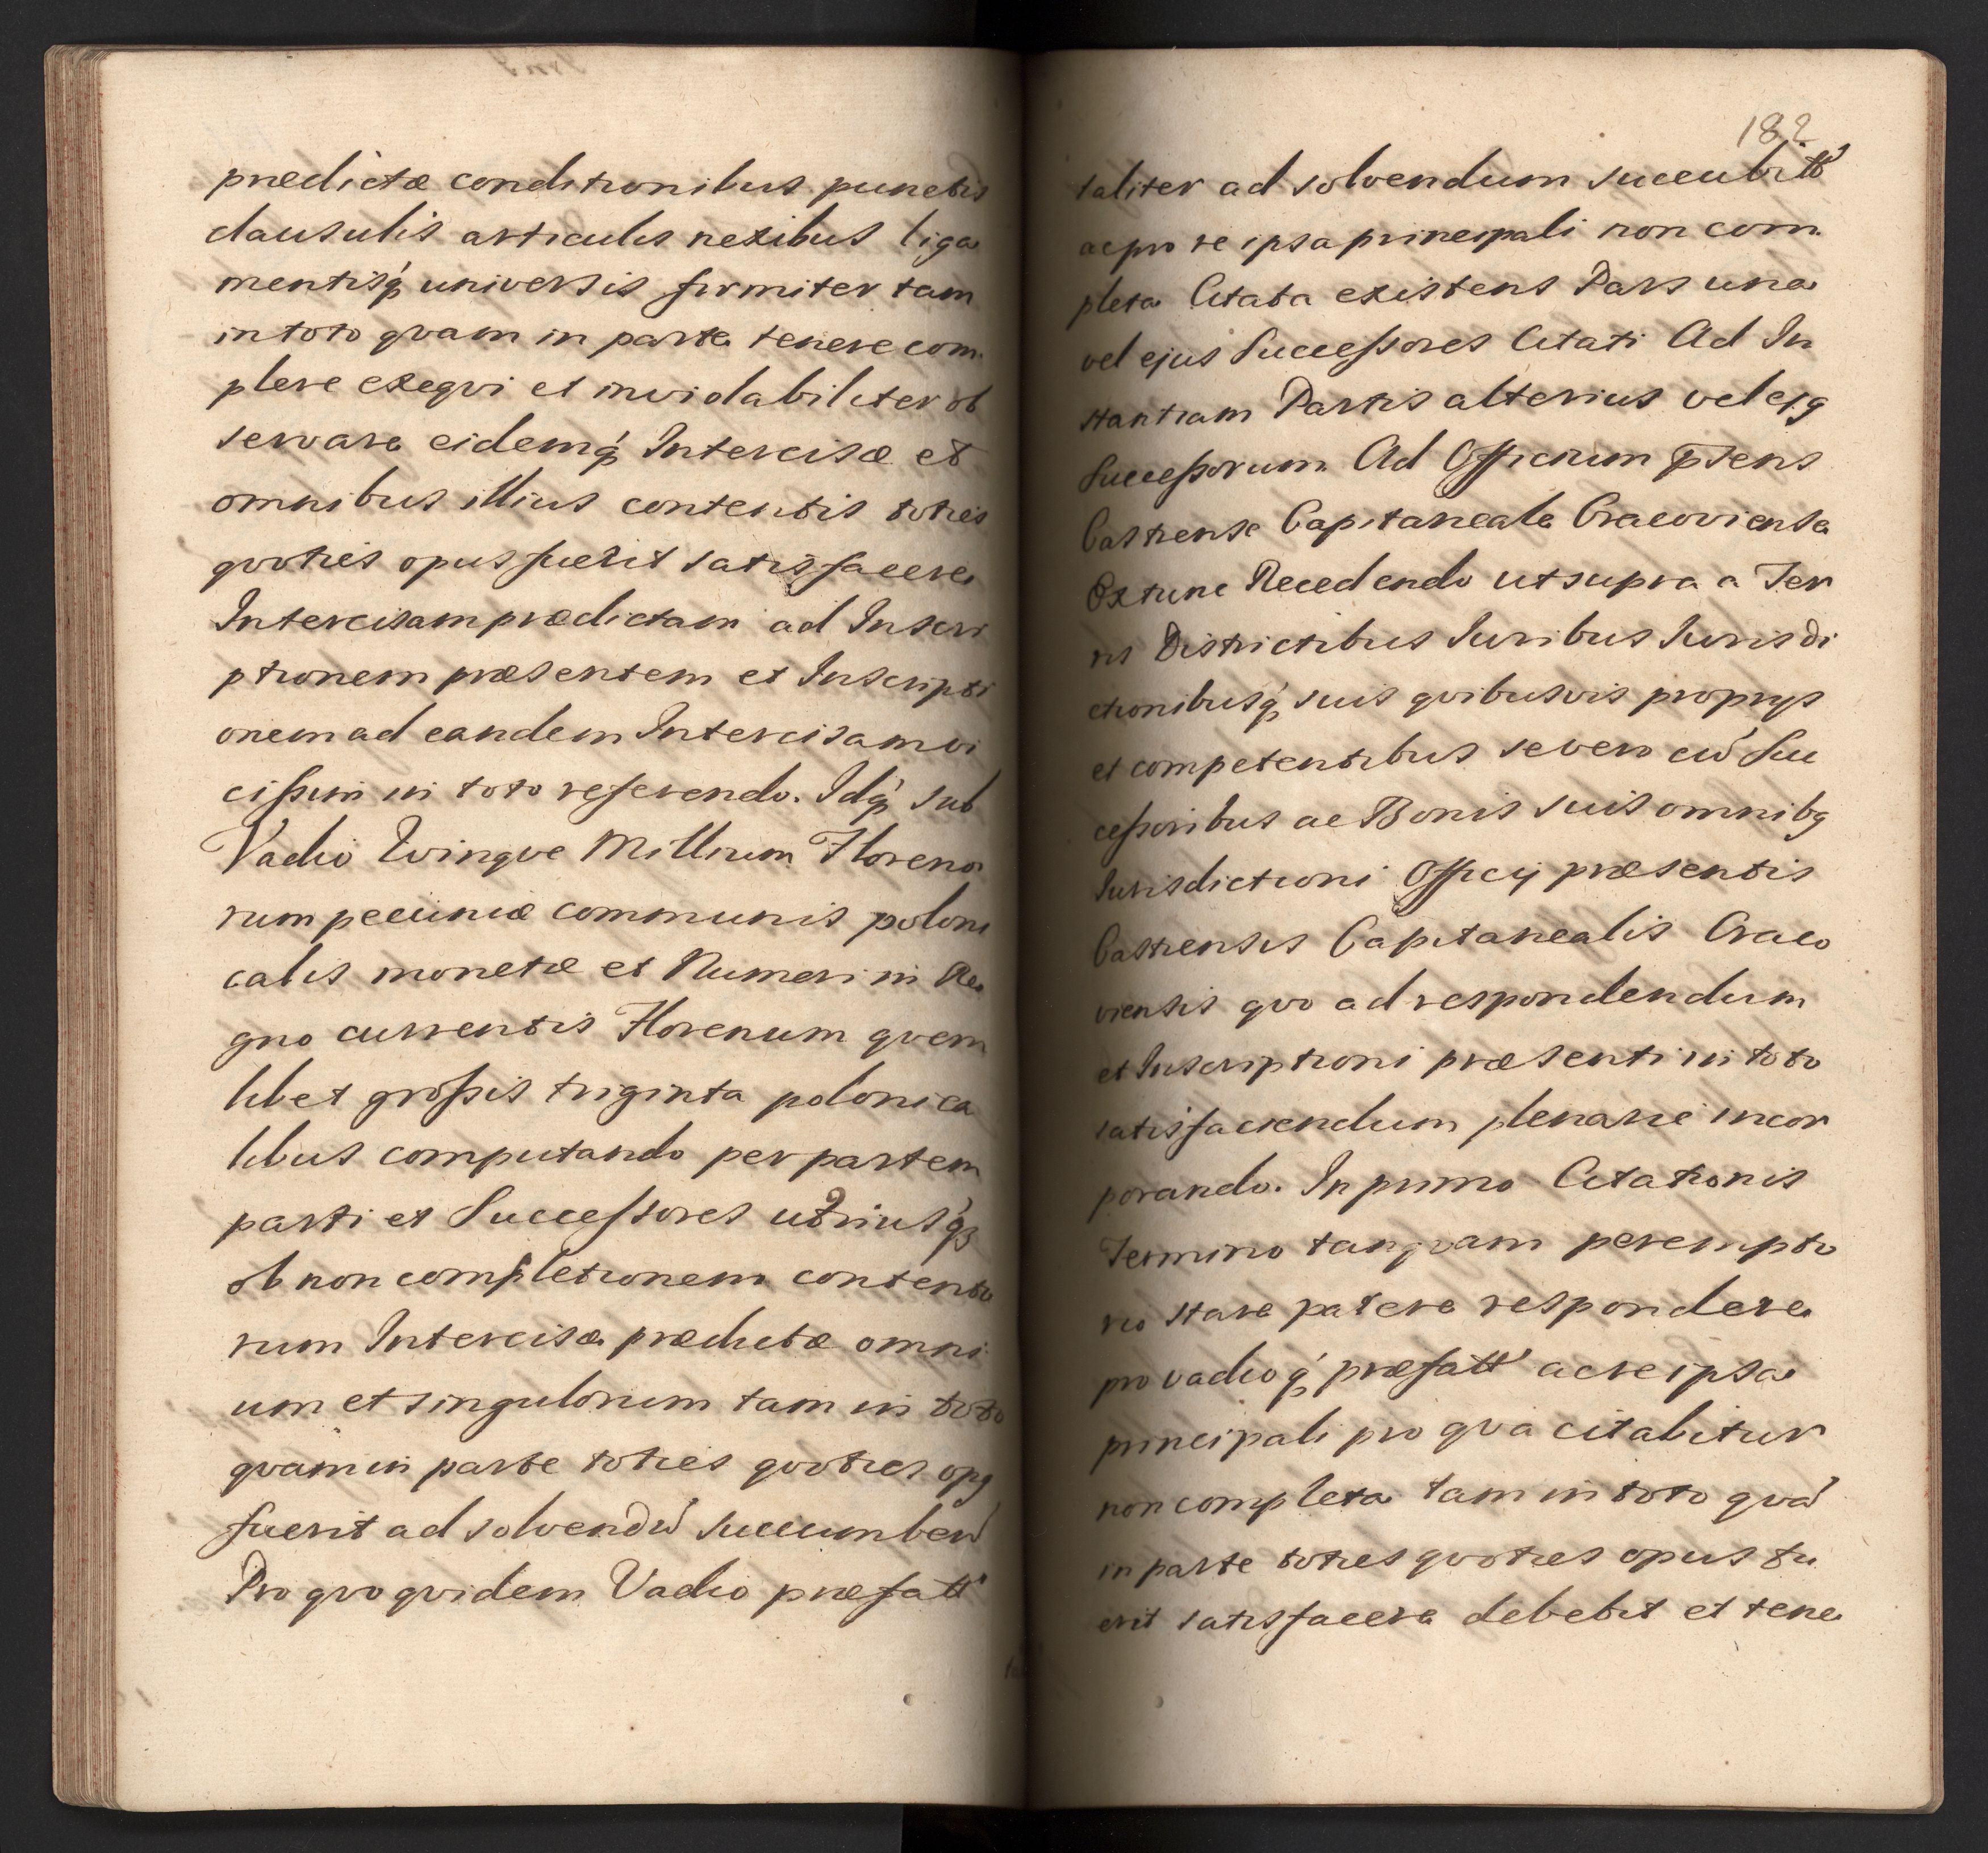 prædictæ conditionibus punctis
clausulis articulis nexibus liga
mentisq́ universis firmiter tam
in toto qvam in parte tenere com
plere exeqvi et inviolabiliter ob
servare eidemq́ Intercisæ et
omnibus illius contentis toties
qvoties opus fuerit satisfacere
Intercisam prædictam ad Inscri
ptionem præsentem et Inscripti
onem ad eandem Intercisam vi
cissim in toto referendo. Idq́ sub
Vadio Qvinqve Millium Floreno
rum pecuniæ communis poloni
calis monetæ et Numeri in Re
gno currentis Florenum qvem
libet grossis triginta polonica
libus computando per partem
parti et Successores utriusq́
ob non completionem contento
rum Intercisæ prædictæ omni
um et singulorum tam in toto
qvam in parte toties qvoties opꝯ
fuerit ad solvendū succumbeñ
Pro qvo qvidem Vadio præfatt
182
taliter ad solvendum succubitt
ac pro re ipsa principali non com
pleta Citata existens Pars una
vel ejus Successores Citati Ad In
stantiam Partis alterius vel ejꝯ
Successorum Ad Officium p̄sens
Castrense Capitaneale Cracoviense
Extunc Recedendo ut supra a Ter
ris Districtibus Iuribus Iurisdi
ctionibusq́ suis qvibusvis proprys
et competentibus se vero cū Suc
cessoribus ac Bonis suis omnibꝯ
Iurisdictioni Officij præsentis
Castrensis Capitanealis Craco
viensis qvo ad respondendum
et Inscriptioni præsenti in toto
satisfaciendum plenarie incor
porando. In primo Citationis
Termino tanqvam perempto
rio stare parere respondere
pro vadioq́ præfatt ac re ipsa
principali pro qva citabitur
non completa tam in toto qvā
in parte toties qvoties opus fu
erit satisfacere debebit et tene